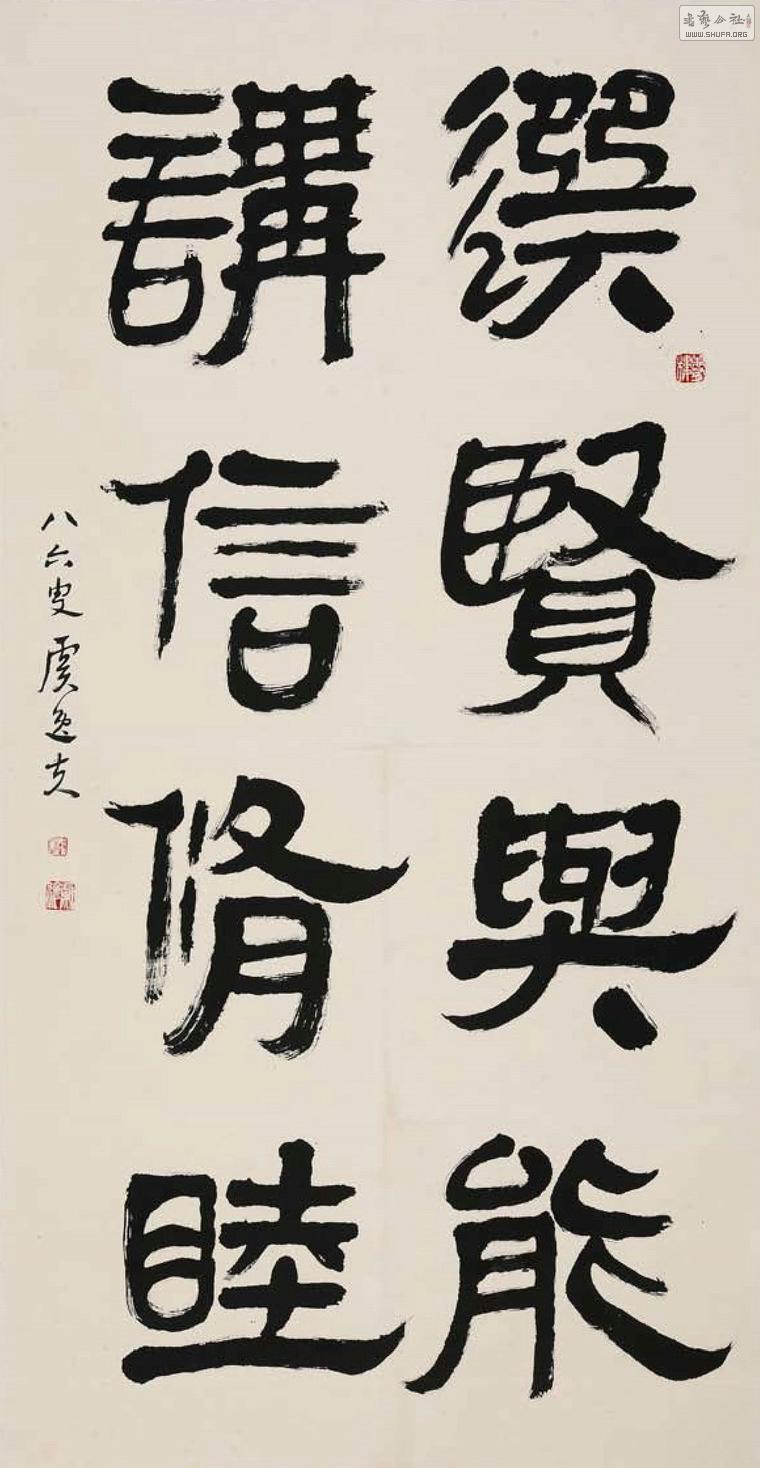 選賢與能
講信脩睦
八六叟 虞逸夫
書藝公社
WWW.SHUFA.ORG